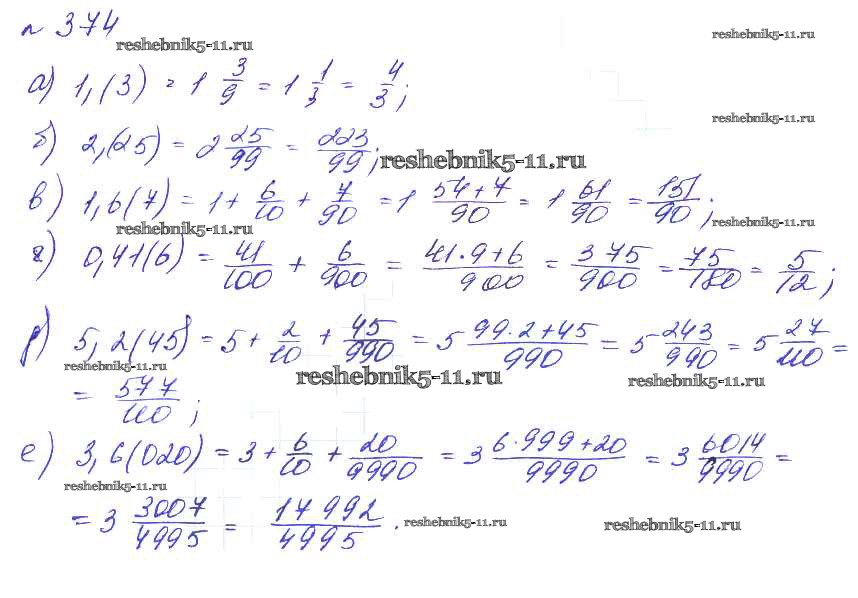 № 374
reshebnik5-11.ru reshebnik5-11.ru
а) 1,(3) = 1 3/9 = 1 1/3 = 4/3;
reshebnik5-11.ru
б) 2,(25) = 2 25/99 = 223/99;
reshebnik5-11.ru
в) 1,6(7) = 1 + 6/10 + 7/90 = 1 54+7/90 = 1 61/90 = 151/90;
reshebnik5-11.ru reshebnik5-11.ru
г) 0,41(6) = 41/100 + 6/900 = 41·9+6/900 = 375/900 = 75/180 = 5/12;
д) 5,2(45) = 5 + 2/10 + 45/990 = 5 99·2+45/990 = 5 243/990 = 5 27/110 =
reshebnik5-11.ru reshebnik5-11.ru reshebnik5-11.ru
= 577/110;
е) 3,6(020) = 3 + 6/10 + 20/9990 = 3 6·999+20/9990 = 3 6014/9990 =
reshebnik5-11.ru
= 3 3007/4995 = 17992/4995.
reshebnik5-11.ru reshebnik5-11.ru